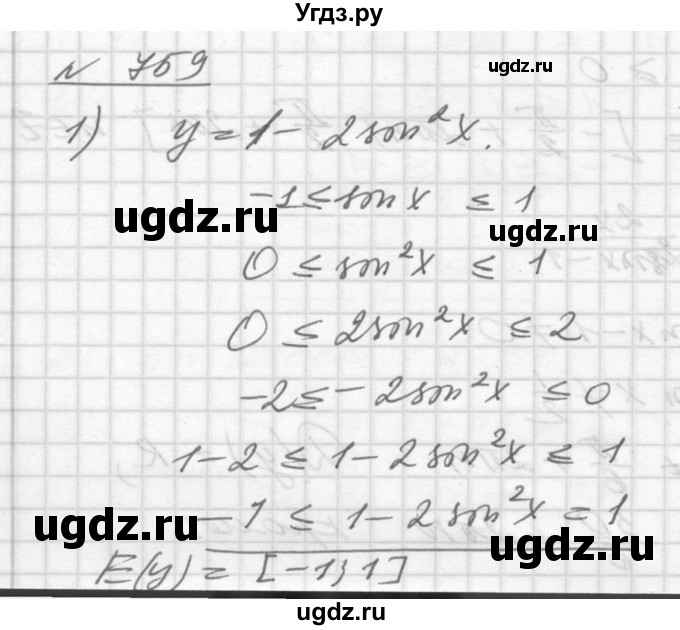 Угдз.ру
№ 759
ugdz.ru
1) y = 1 - 2 sin²x.
-1 ≤ sin x ≤ 1
ugdz.ru
ugdz.ru
0 ≤ sin²x ≤ 1
0 ≤ 2 sin²x ≤ 2
-2 ≤ -2 sin²x ≤ 0
1-2 ≤ 1-2 sin²x ≤ 1
-1 ≤ 1-2 sin²x = 1
ugdz.ru
ugdz.ru
E(y) = [-1; 1]
ugdz.ru